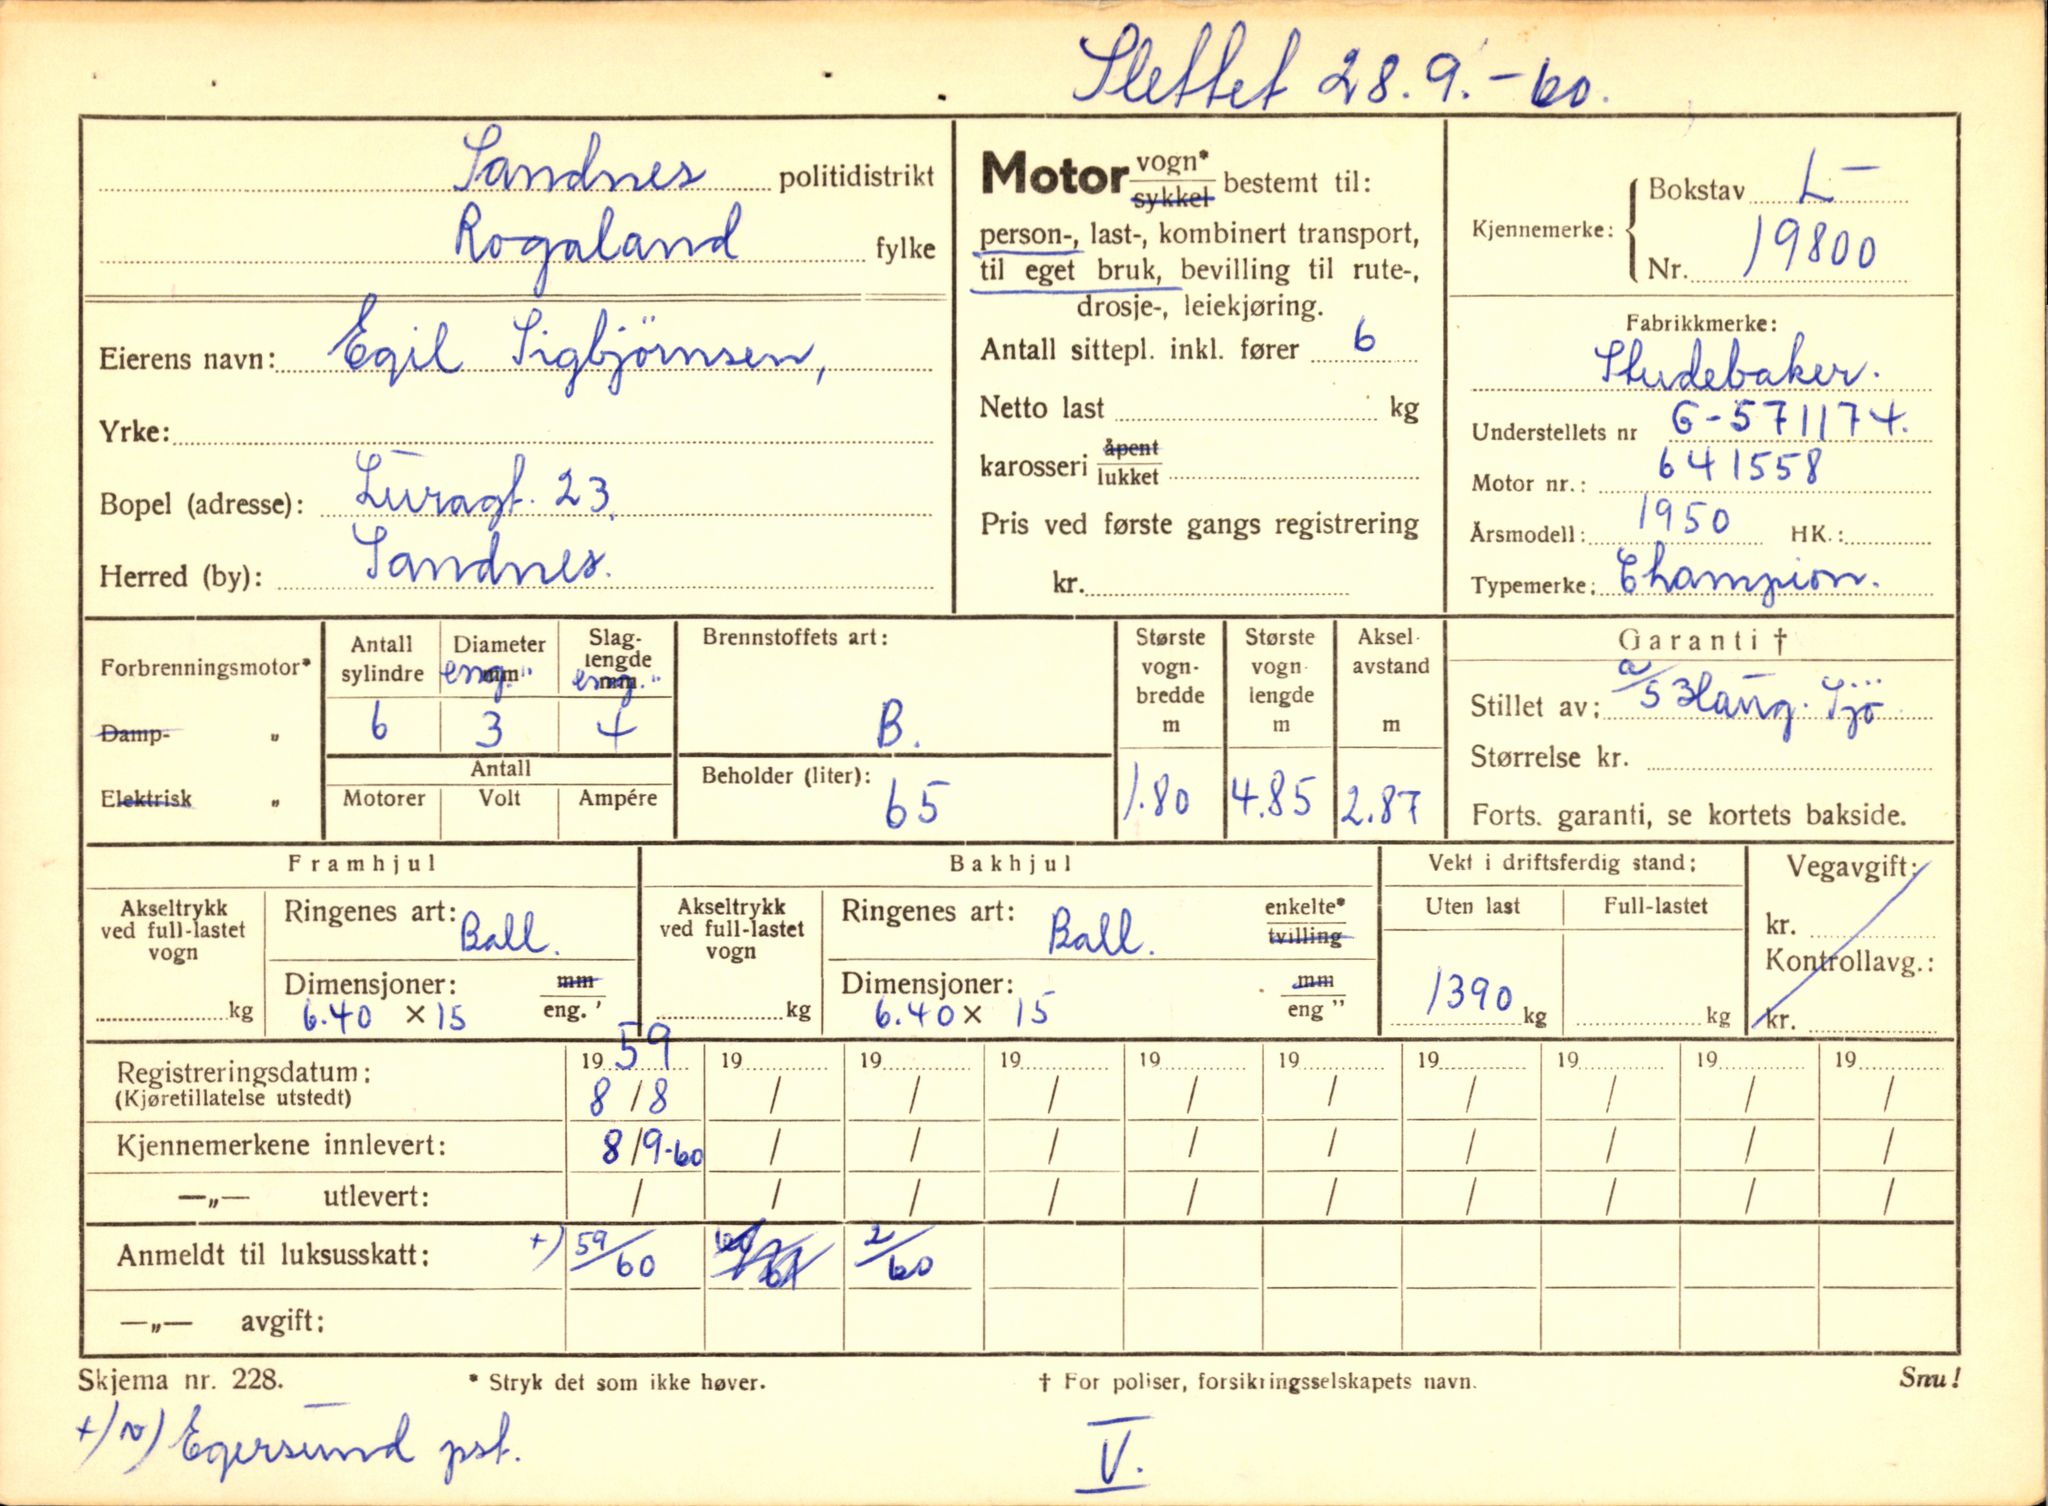 Slettet 28.9.-60.
Sandnes politidistrikt
Rogaland fylke
Eierens navn: Egil Sigbjörnsen,
Yrke:
Bopel (adresse): Luragt. 23.
Herred (by): Sandnes.
Motor vogn* sykkel bestemt til:
person-, last-, kombinert transport,
til eget bruk, bevilling til rute-,
drosje-, leiekjøring.
Antall sittepl. inkl. fører 6
Netto last kg
karosseri åpent lukket
Pris ved første gangs registrering
kr.
Kjennemerke: Bokstav L-
Nr. 19800
Fabrikkmerke:
Studebaker.
Understellets nr G-571174.
Motor nr.: 641558
Årsmodell: 1950 HK.:
Typemerke: Champion.
Forbrenningsmotor*
Damp- „
Elektrisk „
Antall sylindre
6
Diameter mm eng."
3
Slag-lengde mm eng."
4
Antall
Motorer Volt Ampére
Brennstoffets art:
B.
Beholder (liter):
65
Største vogn-bredde m
1.80
Største vogn lengde m
4.85
Aksel-avstand m
2.87
Garanti †
Stillet av: a/s Haug. Sjö
Størrelse kr.
Forts. garanti, se kortets bakside.
Framhjul
Akseltrykk ved full-lastet vogn
kg
Ringenes art: Ball.
Dimensjoner: mm
6.40 × 15 eng. '
Bakhjul
Akseltrykk ved full-lastet vogn
kg
Ringenes art: Ball. enkelte* tvilling
Dimensjoner: mm
6.40 × 15 eng "
Vekt i driftsferdig stand:
Uten last Full-lastet
1390 kg kg
Vegavgift:
kr.
Kontrollavg.:
kr.
Registreringsdatum: 19 59 19 19 19 19 19 19 19 19 19
(Kjøretillatelse utstedt) 8 / 8 / / / / / / / / /
Kjennemerkene innlevert: 8/9-60 / / / / / / / / /
—„— utlevert: / / / / / / / / / /
Anmeldt til luksusskatt: +) 59/60 60/61 2/60
—„— avgift:
Skjema nr. 228. * Stryk det som ikke høver. † For poliser, forsikringsselskapets navn. Snu!
+) Egersund pst. V.